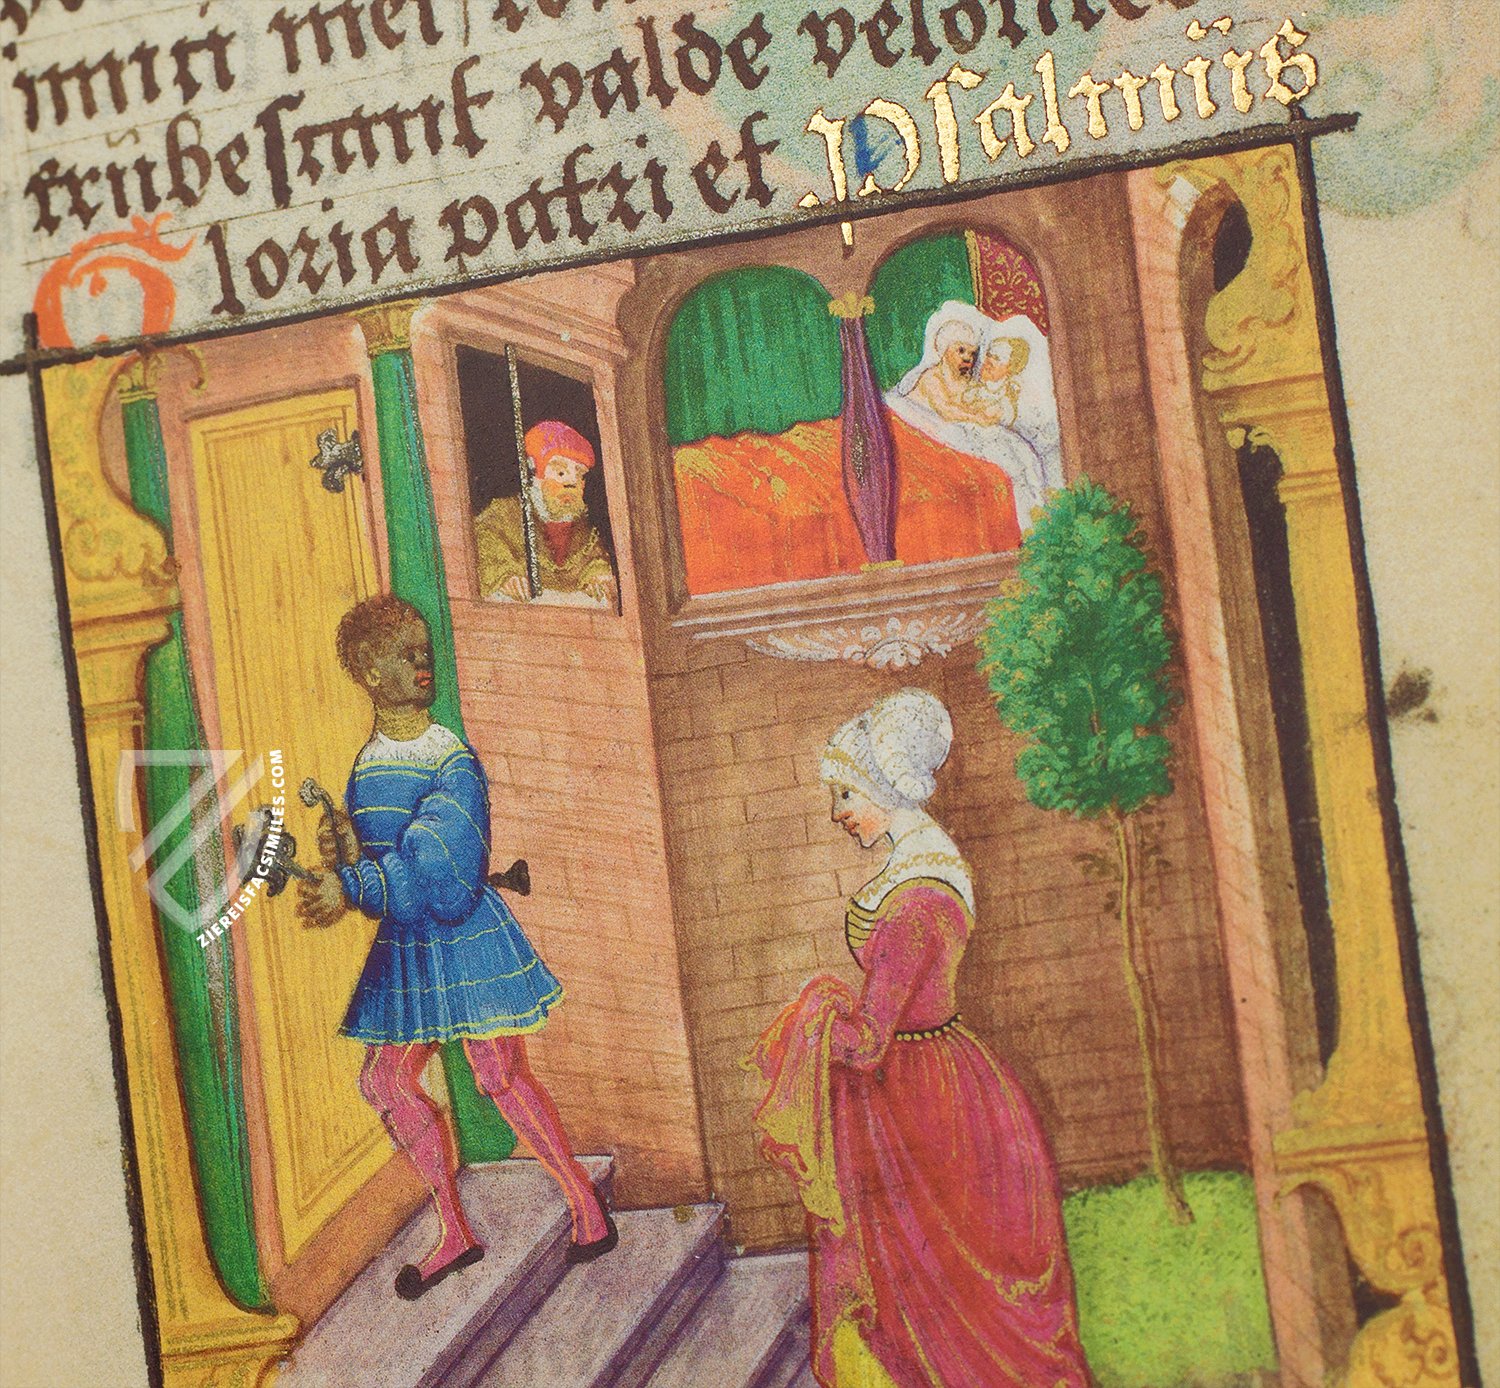 imici mei
erubescant valde veloci
Gloria patri et Psalmus
ZIEREISFACSIMILES.COM